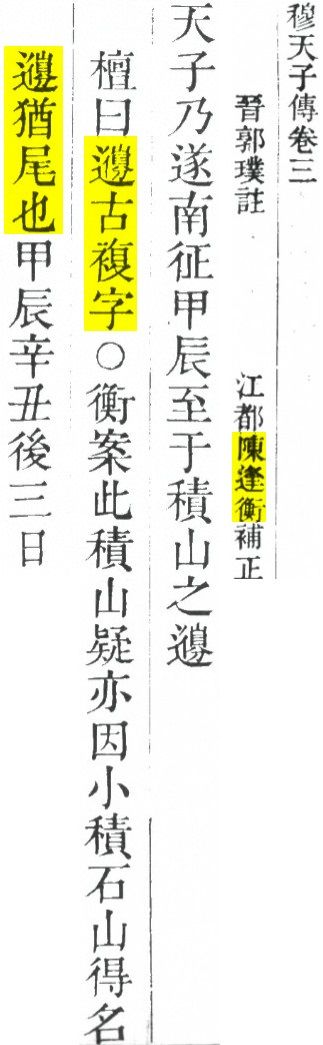 穆天子傳卷三
晉郭璞註　江都陳逢衡補正
天子乃遂南征甲辰至于積山之邊
檀曰邊古複字○衡案此積山疑亦因小積石山得名
邊猶尾也甲辰辛丑後三日